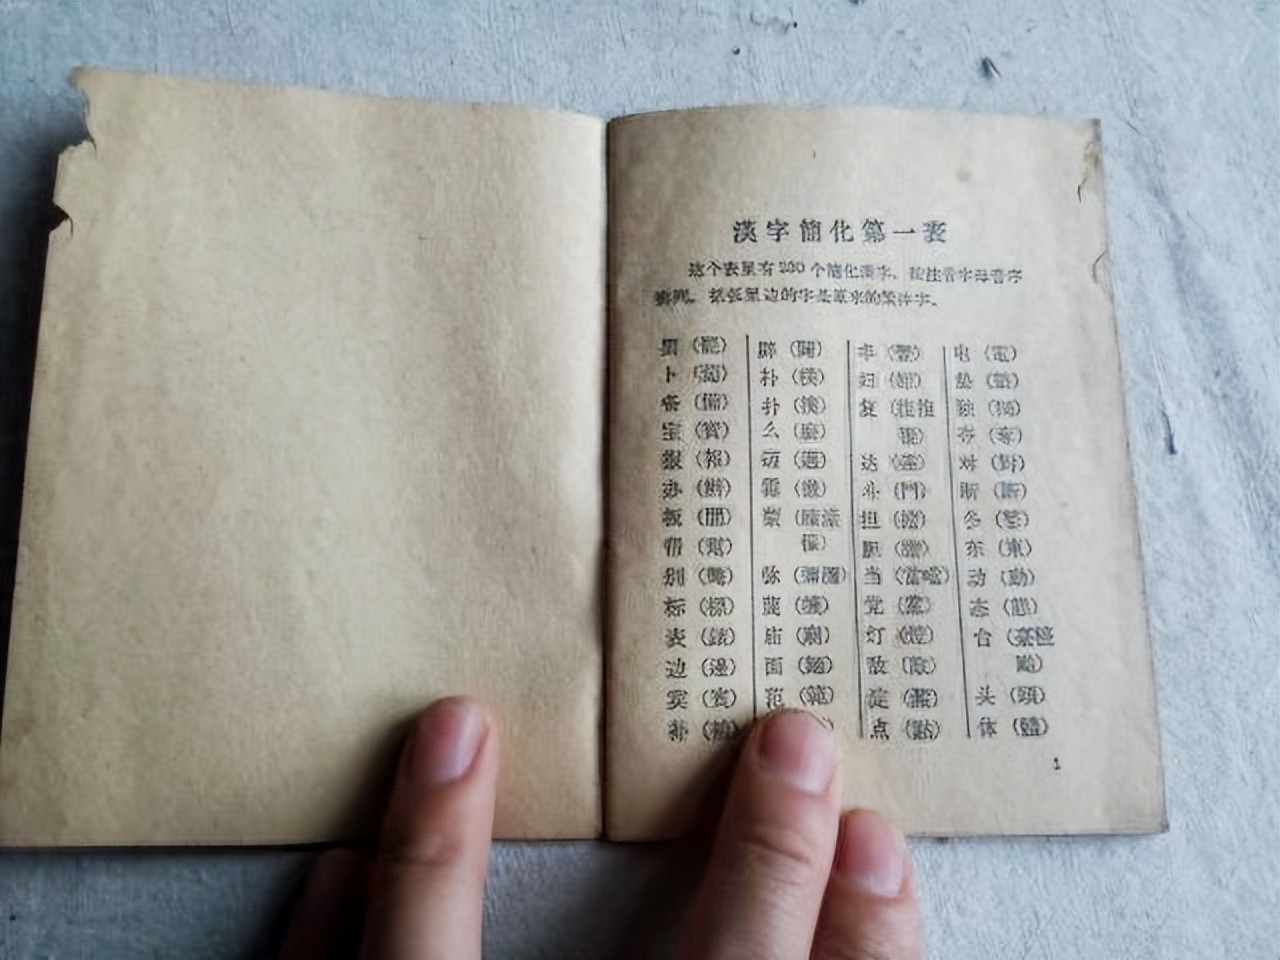 漢字簡化第一表
这个表里有 230 个简化漢字，按注音字母音序
排列。括弧里边的字是原来的繁体字。
罢（罷）
卜（蔔）
备（備）
宝（寶）
报（報）
办（辦）
板（闆）
帮（幫）
别（彆）
标（標）
表（錶）
边（邊）
宾（賓）
补（補）
辟（闢）
朴（樸）
扑（撲）
么（麼）
迈（邁）
霉（黴）
蒙（矇濛
懞）
弥（彌瀰）
蔑（衊）
庙（廟）
面（麵）
范（範）
丰（豐）
妇（婦）
复（復複
覆）
达（達）
斗（鬥）
担（擔）
胆（膽）
当（當噹）
党（黨）
灯（燈）
敌（敵）
淀（澱）
点（點）
电（電）
垫（墊）
独（獨）
夺（奪）
对（對）
断（斷）
冬（鼕）
东（東）
动（動）
态（態）
台（臺檯
颱）
头（頭）
体（體）
1